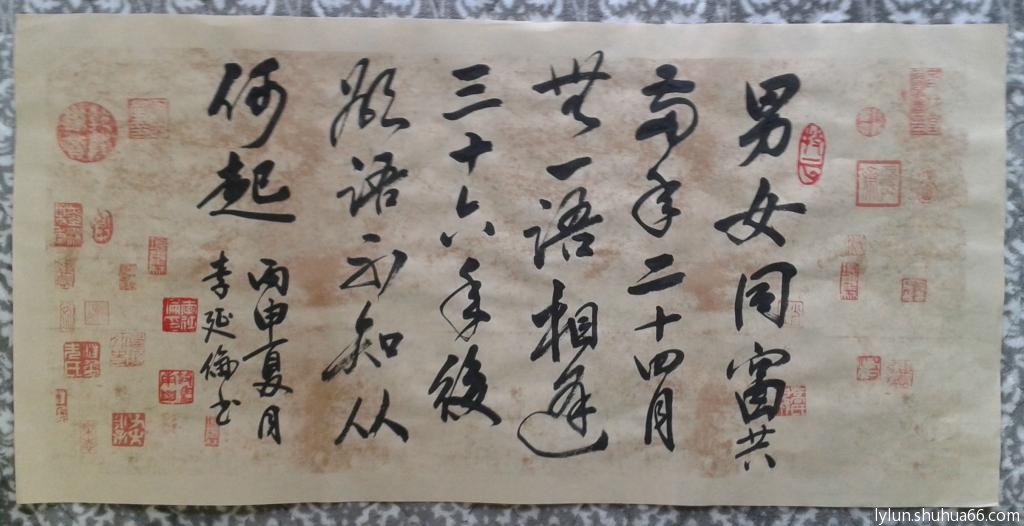 男女同窗共
两年二十四月
无一语相逢
三十六年後
欲语不知从
何起
丙申夏月
李延倫书
lylun.shuhua66.com